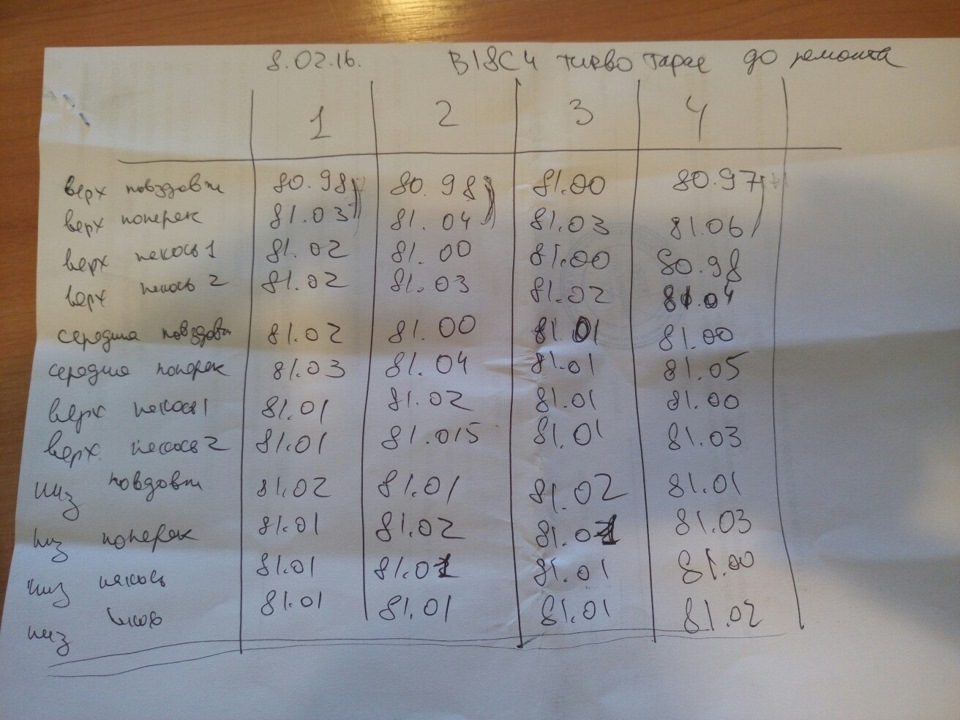 8.02.16. B18C4 турво Тарас до ремонта
1 2 3 4
верх повздовж 80.98 80.98 81.00 80.97
верх поперек 81.03 81.04 81.03 81.06
верх некось 1 81.02 81.00 81.00 80.98
верх некось 2 81.02 81.03 81.02 81.04
середина повздовж 81.02 81.00 81.01 81.00
середина поперек 81.03 81.04 81.01 81.05
верх некось 1 81.01 81.02 81.01 81.00
верх некось 2 81.01 81.015 81.01 81.03
низ повздовж 81.02 81.01 81.02 81.01
низ поперек 81.01 81.02 81.01 81.03
низ некось 81.01 81.01 81.01 81.00
низ 81.01 81.01 81.01 81.02